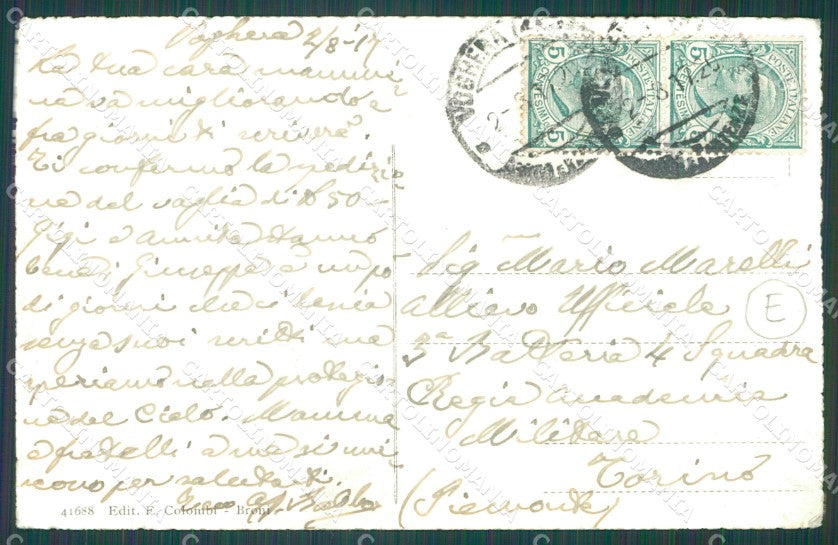 Voghera 2/8-17
La tua cara mammi
na va migliorando e
fra giorni ti scriverà
Ti confermo la spedizio
ne del vaglia di £ 50 -
Gigi e stanno
bene di Giuseppe è un po'
di giorni che ci lascia
senza suoi scritti ma
speriamo nella protezio
ne del Cielo. Mamma
e fratelli a me si uni
scono per salutarti.
Sig Mario Marelli
Allievo Ufficiale
3ª Batteria 4 Squadra
Regia Accademia
Militare
Torino
(Piemonte)
E
POSTE ITALIANE
CENTESIMI 5
POSTE ITALIANE
CENTESIMI 5
VOGHERA
41688 Edit. E. Colombi - Broni
CARTOLINOMANIA